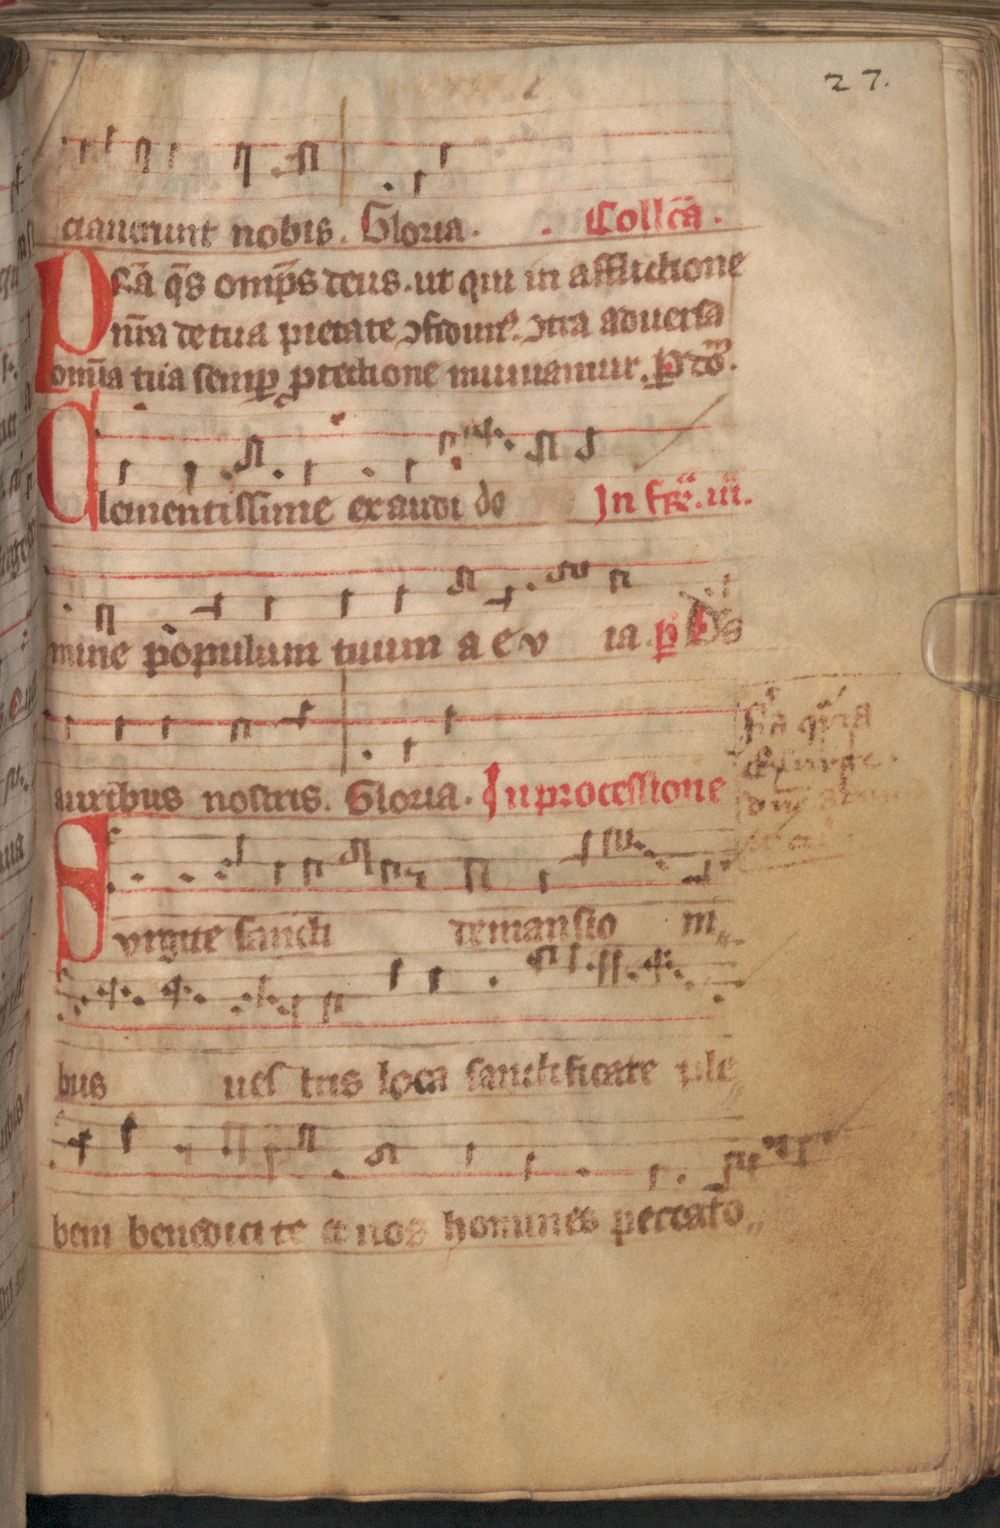 27.
ciauerunt nobis. Gloria. Collcā.
Prā q̄s omīps deus. ut qui in afflictione
nr̄a de tua pietate ɔfidimꝰ. ɔtra aduersa
omīa tua semꝑ ꝓtectione muniamur. ꝑ dō.
Clementissime exaudi do In fr̄. iii.
mine populum tuum a e v ia p̄ Ds
auribus nostris. Gloria. In processione
Surgite sancti demansio ni„
bus ues tris loca sanctificate ple
bem benedici te et nos homines peccato„